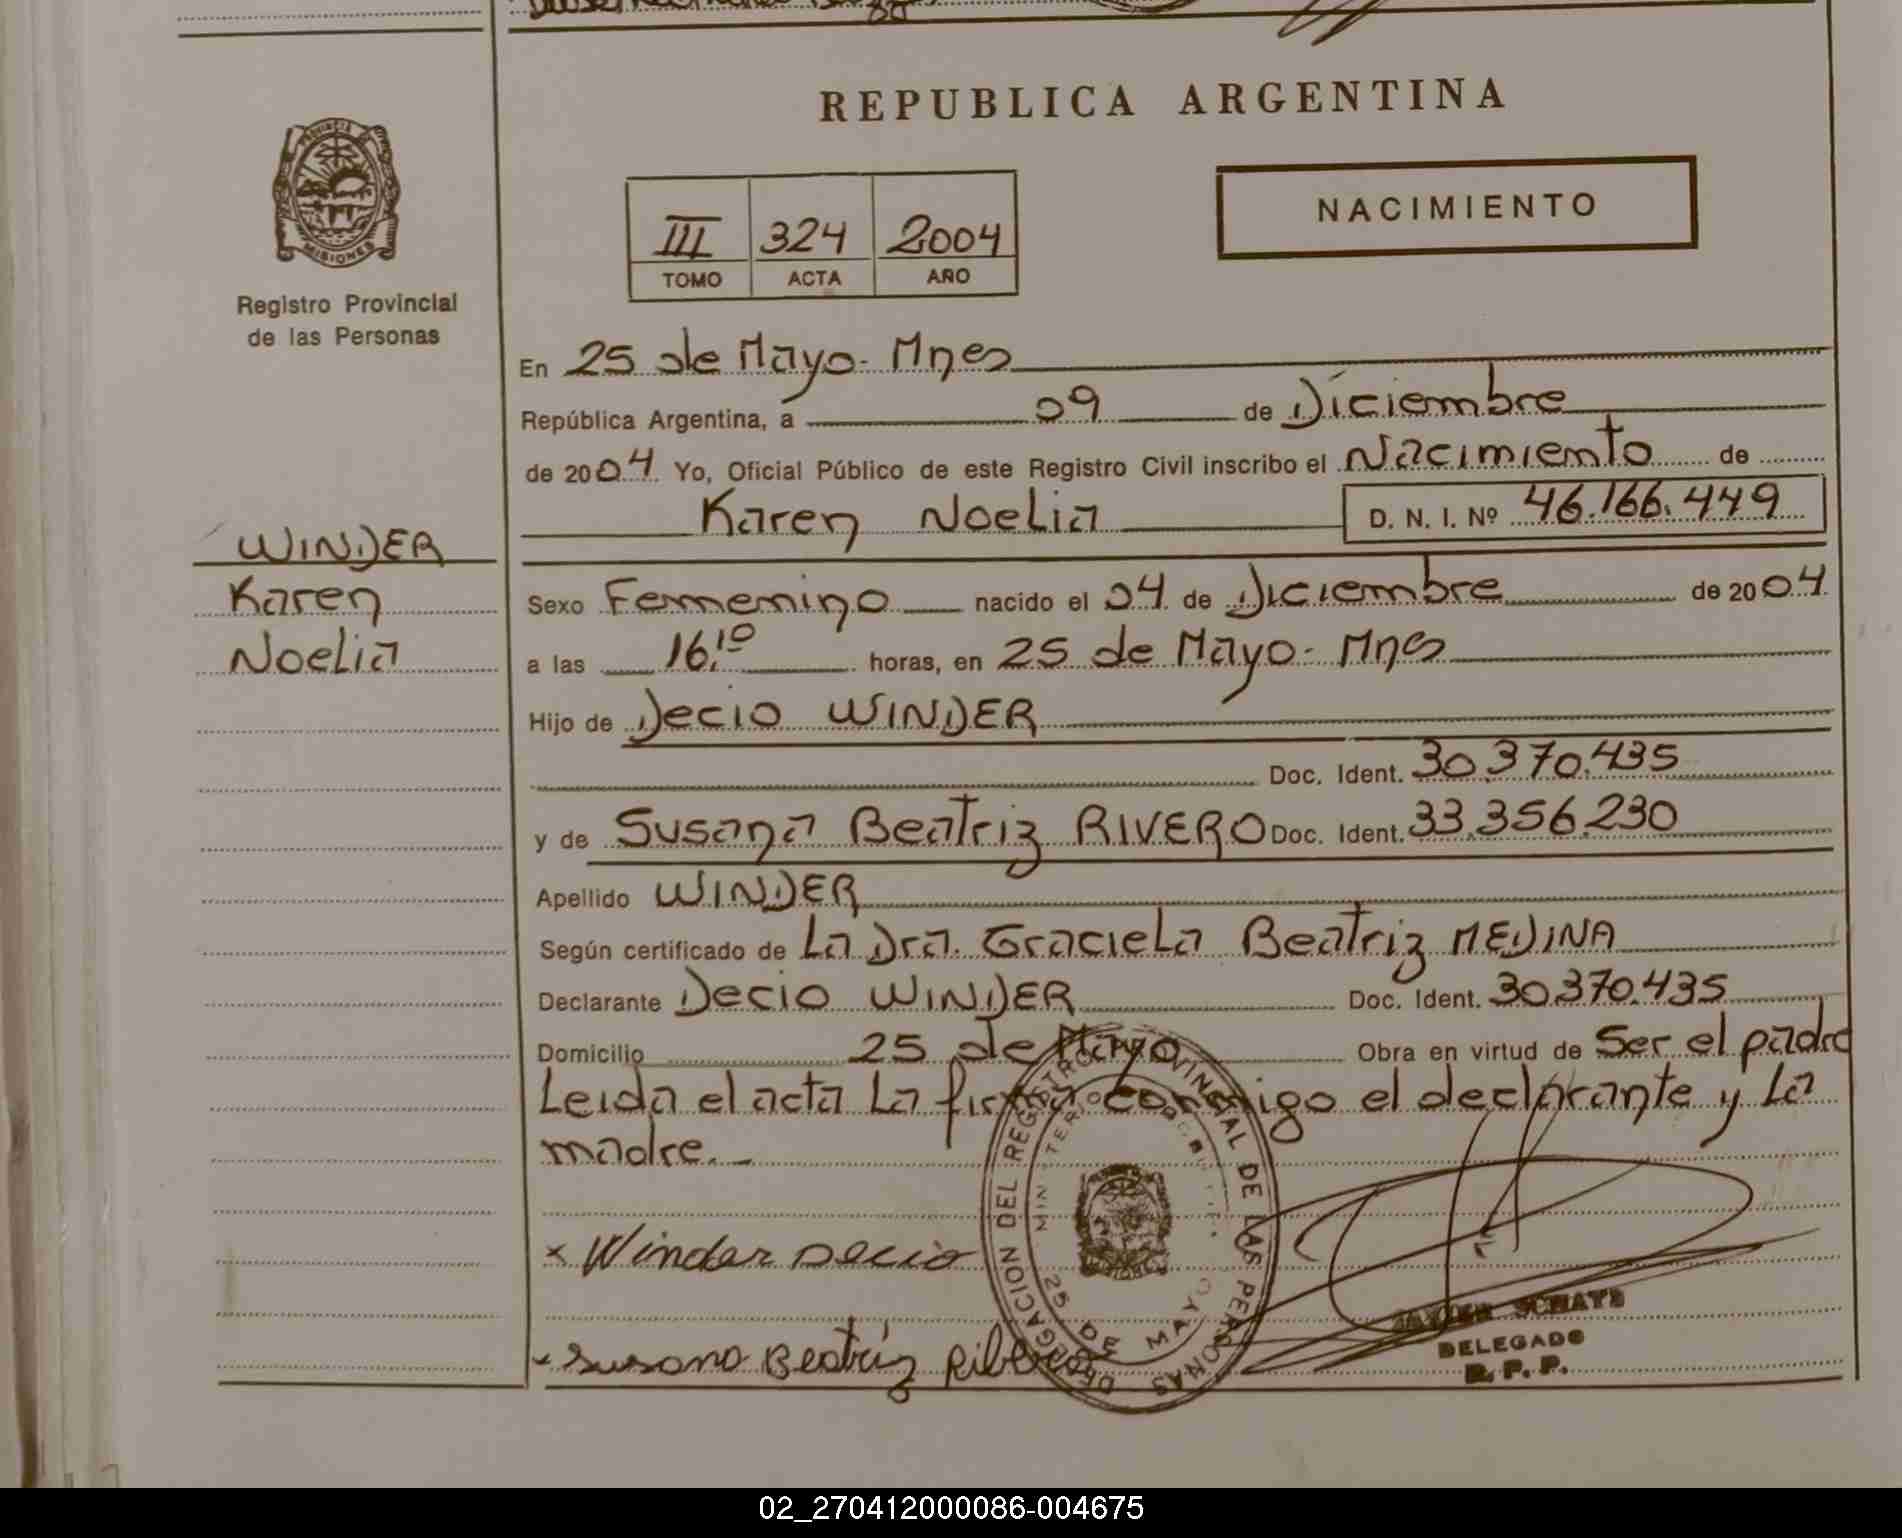 REPUBLICA ARGENTINA
PROVINCIA
MISIONES
Registro Provincial
de las Personas
III 324 2004
TOMO ACTA AÑO
NACIMIENTO
En 25 de Mayo - Mnes
República Argentina, a 09 de Diciembre
de 2004 Yo, Oficial Público de este Registro Civil inscribo el Nacimiento de
Karen Noelia D. N. I. Nº 46.166.449
WINDER
Karen
Noelia
Sexo Femenino nacido el 04 de Diciembre de 2004
a las 16,10 horas, en 25 de Mayo - Mnes
Hijo de Decio WINDER
Doc. Ident. 30.370.435
y de Susana Beatriz RIVERO Doc. Ident. 33.356.230
Apellido WINDER
Según certificado de La Dra. Graciela Beatriz MEDINA
Declarante Decio WINDER Doc. Ident. 30.370.435
Domicilio 25 de Mayo Obra en virtud de Ser el padre
Leida el acta La firma conmigo el declarante y La
madre. -
x Winder Decio
DELEGACION DEL REGISTRO PROVINCIAL DE LAS PERSONAS
MINISTERIO
25 DE MAYO
Susana Beatriz
SCHATS
DELEGADO
R. P. P.
02_270412000086-004675